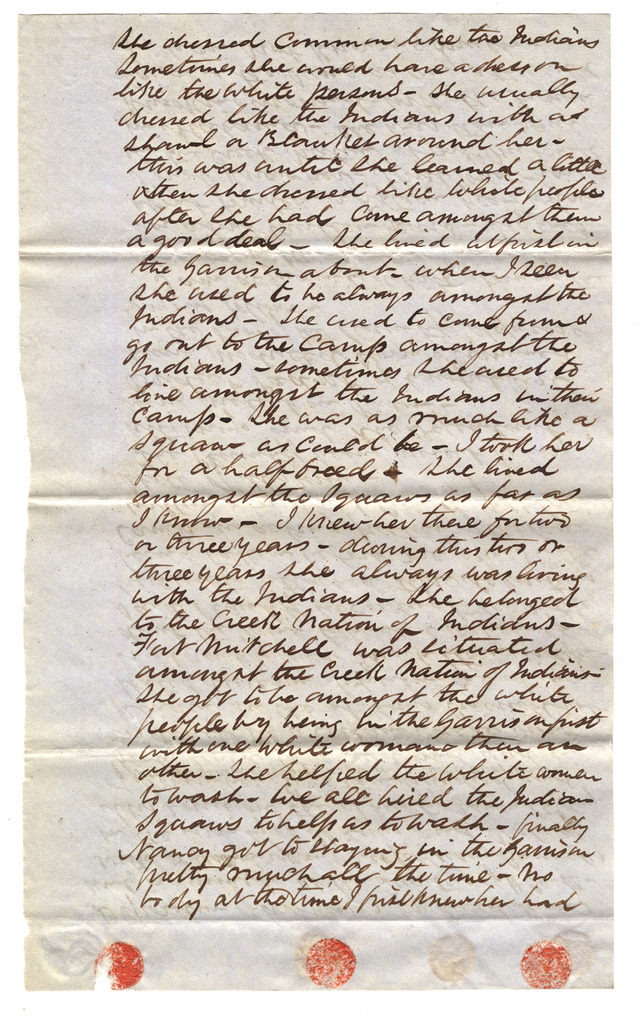 She dressed Common like the Indians
Sometimes she would have a dress on
like the white persons - She usually
dressed like the Indians with a
Shawl or Blanket around her -
this was until she learned a little
& then she dressed like white people
after she had Come amongst them
a good deal - She lived at first in
the Garrison about - when I seen
She used to be always amongst the
Indians - She used to come from &
go out to the Camp amongst the
Indians - sometimes She used to
live amongst the Indians in their
Camp - She was as much like a
Squaw as could be - I took her
for a half breed She lived
amongst the Squaws as far as
I know - I knew her there for two
or three years - during this two or
three years She always was living
with the Indians - She belonged
to the Creek Nation of Indians -
Fort Mitchell was situated
amongst the Creek Nation of Indians -
She got to be amongst the white
people by being in the Garrison first
with one white woman & then an
other - She helped the white women
to wash - We all hired the Indian
Squaws to help us to wash - finally
Nancy got to staying in the Garrison
pretty much all the time - No
body at the time I first knew her had